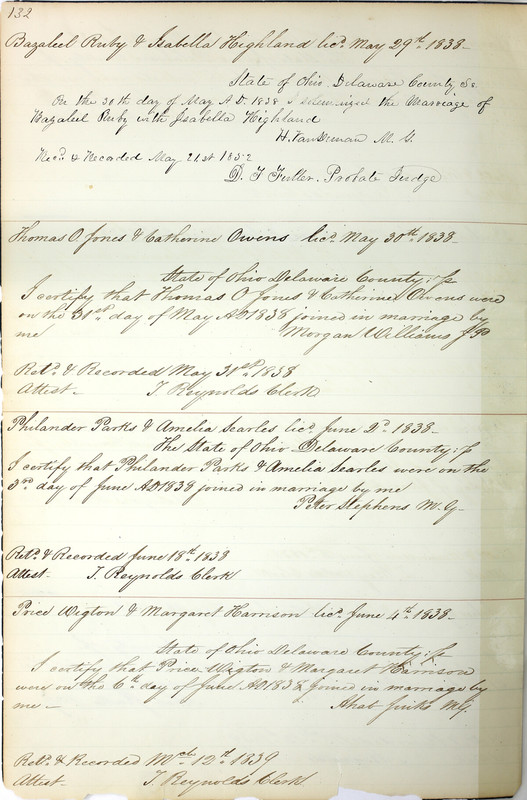 132
Bazaleel Ruby & Isabella Highland lics. May 29th. 1838-
State of Ohio Delaware County Ss
On the 30th day of May A.D. 1838 I solemnized the Marriage of
Bazaleel Ruby with Isabella Highland
H. VanDeman M. G.
Recd. & Recorded May 21st 1852
D. T. Fuller. Probate Judge
Thomas O. Jones & Catherine Owens lics. May 30th. 1838-
State of Ohio Delaware County; ss
I certify that Thomas O Jones & Catherine Owens were
on the 31st. day of May AD 1838 joined in marriage by
me Morgan Williams J P
Retd. & Recorded May 31st. 1838
Attest- T. Reynolds Clerk
Philander Parks & Amelia Searles lics. June 2d. 1838-
The State of Ohio Delaware County; ss
I certify that Philander Parks & Amelia Searles were on the
3rd. day of June AD 1838 joined in marriage by me
Peter Stephens M. G-
Retd. & Recorded June 18th. 1838
Attest. T. Reynolds Clerk
Price Wigton & Margaret Harrison lics. June 4th. 1838-
State of Ohio Delaware County; ss
I certify that Price Wigton & Margaret Harrison
were on the 6th day of June AD 1838 joined in marriage by
me - Ahab Jinks MG.
Retd. & Recorded Mch. 12th. 1839
Attest- T. Reynolds Clerk